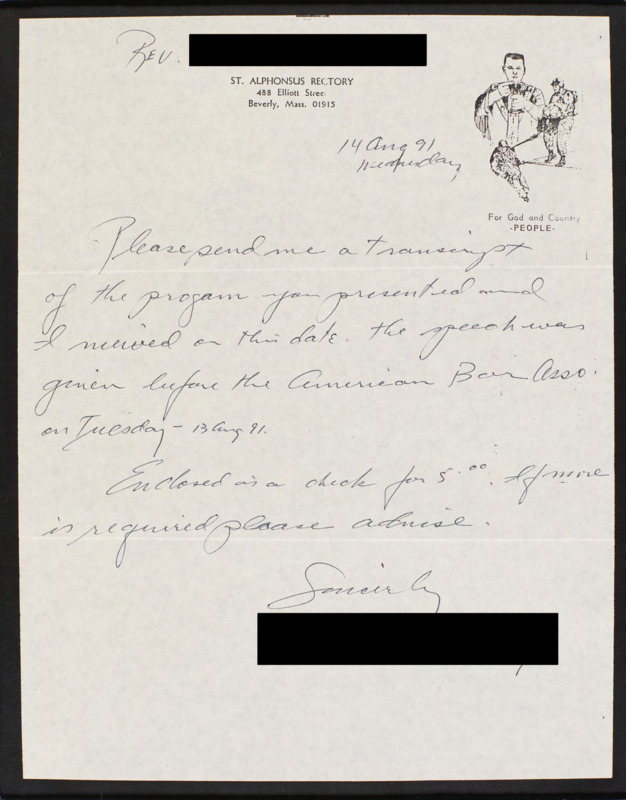 Rev.
ST. ALPHONSUS RECTORY
488 Elliott Street
Beverly, Mass. 01915
14 Aug 91
Wednesday
For God and Country
-PEOPLE-
Please send me a transcript
of the progam you presented and
I viewed on this date. The speech was
given before the American Bar Asso.
on Tuesday - 13 Aug 91.
Enclosed is a check for 5.00. If more
is required please advise.
Sincerely